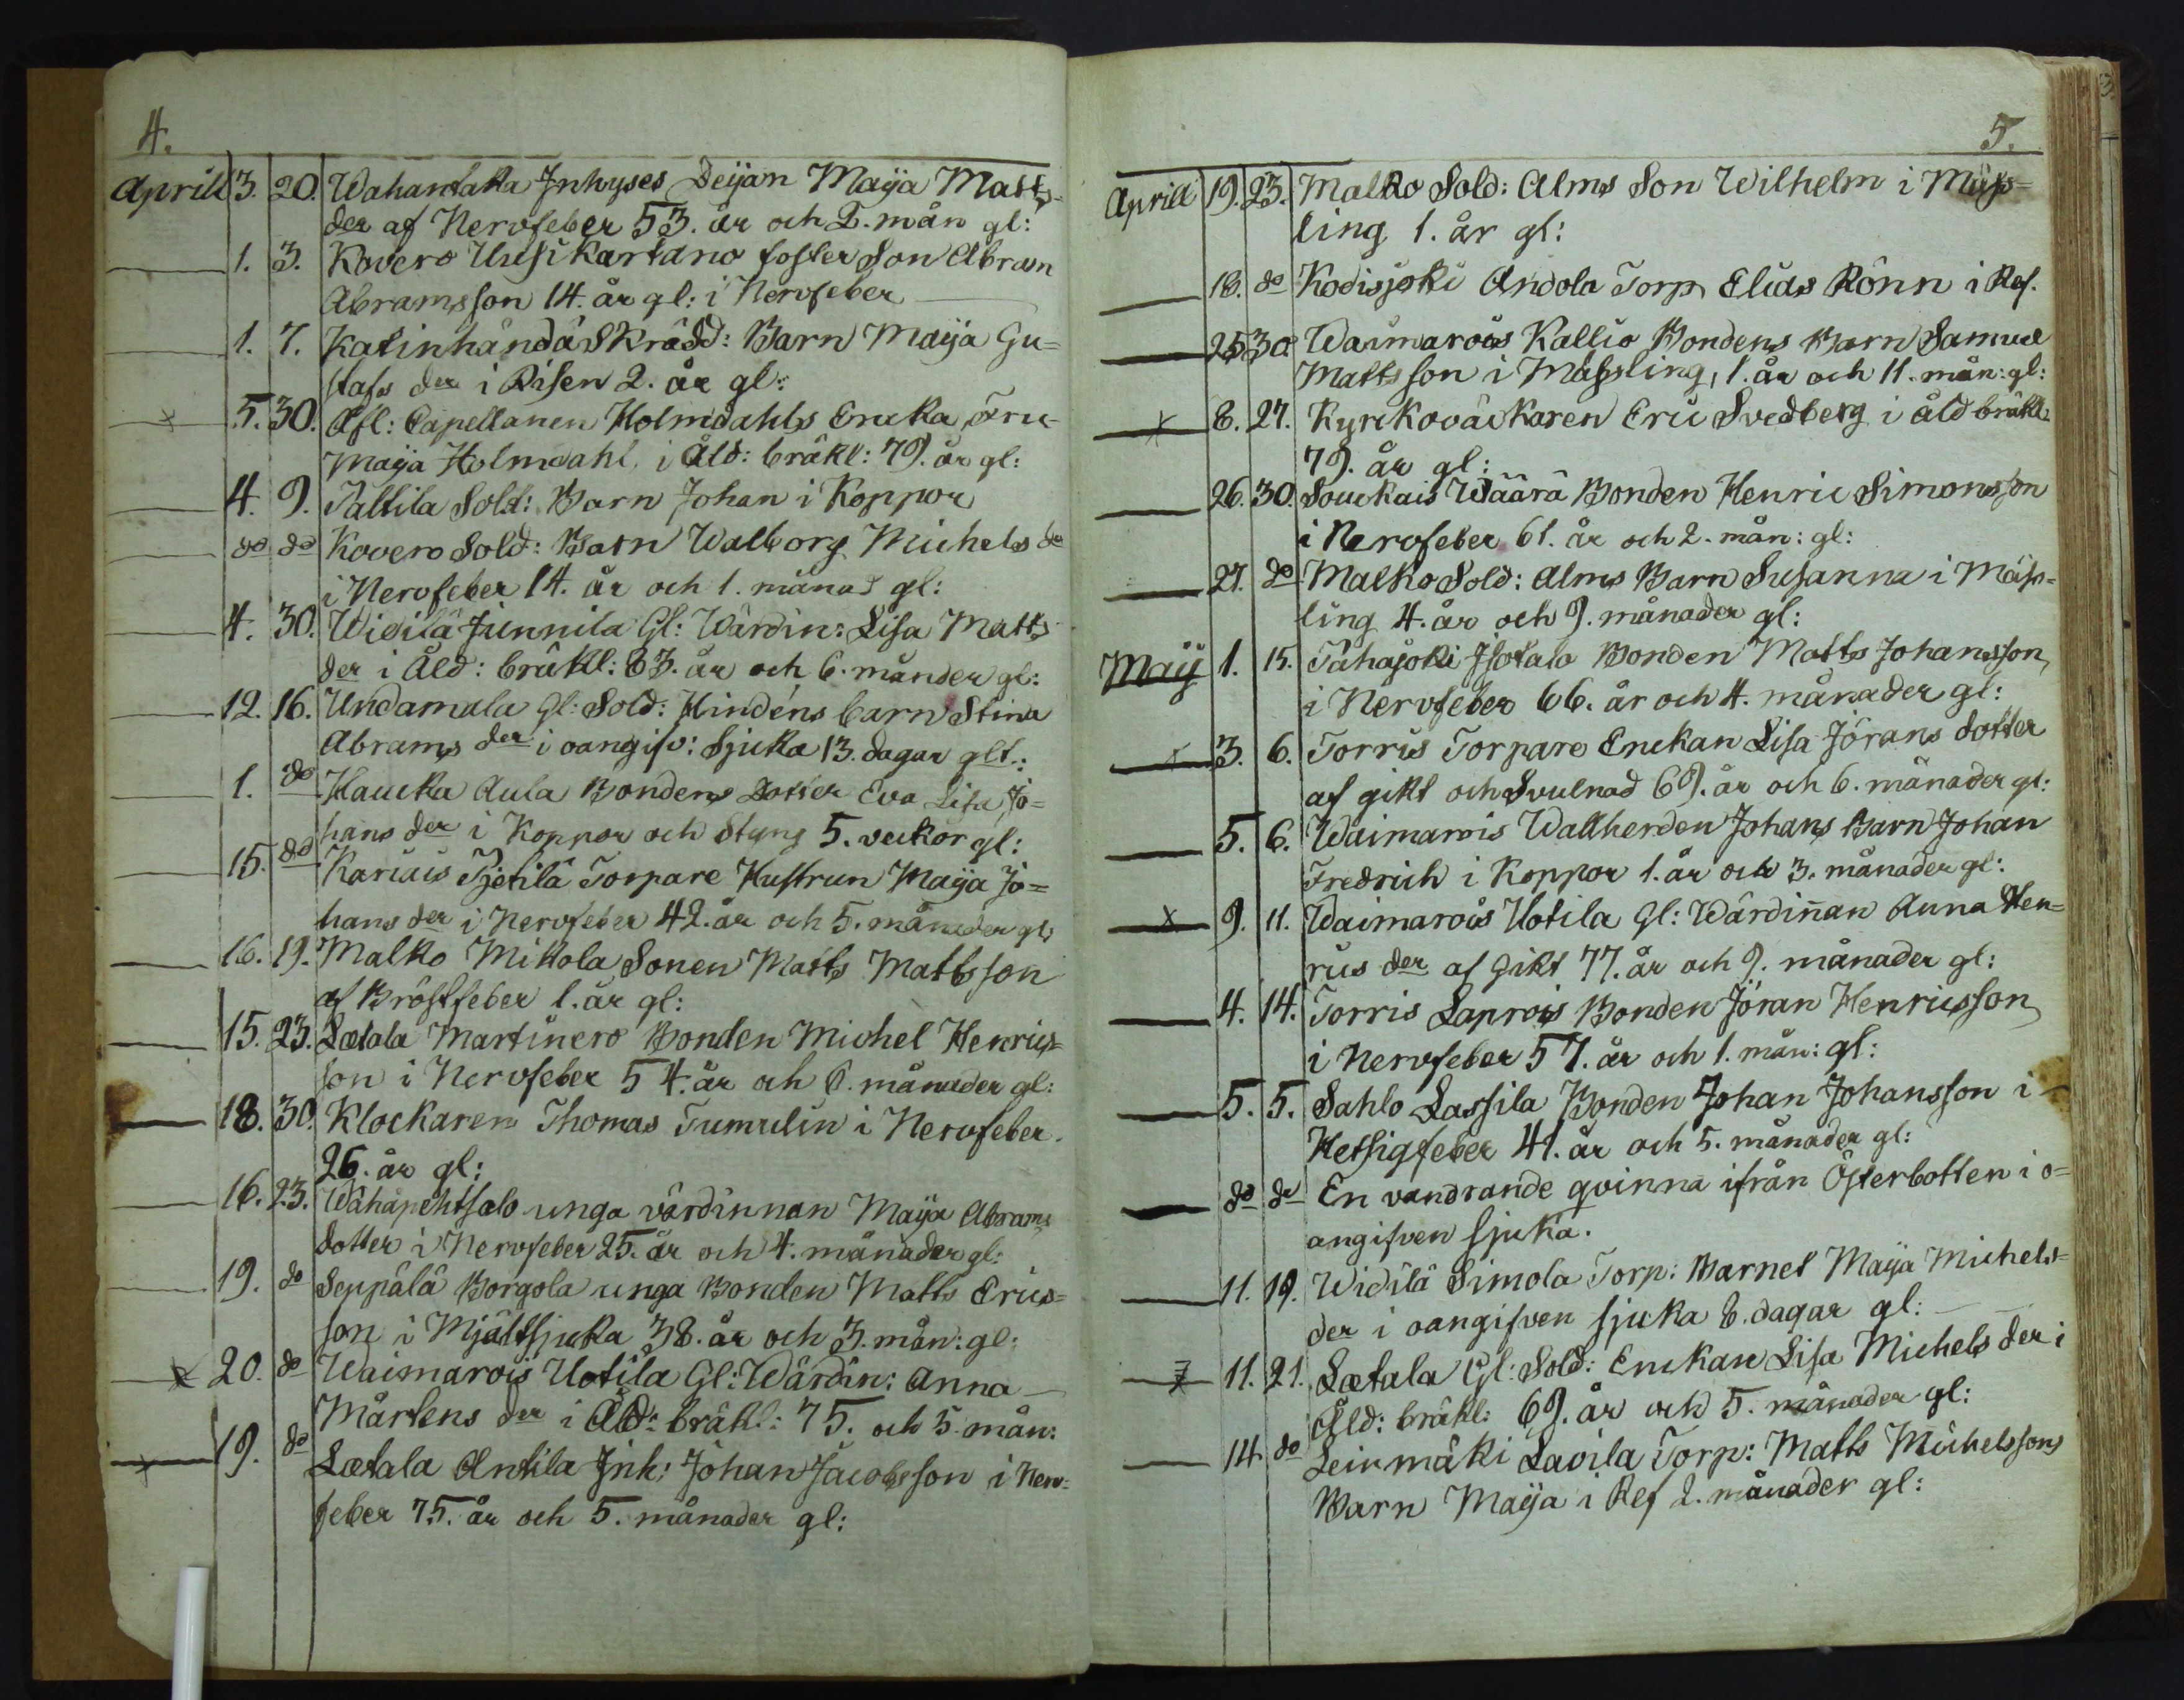 4.
Aprill 3. 20. Wahantaka Inhyses Deijan Maija Matts
der af Nervfeber 53. år och 2. mån gl:
1. 3. Kovero Uusikartano foster Son Abram
Abramsson 14. år gl: i Nervfeber
1. 7. Katinhändä Skrädd: Barn Maija Gu=
stafs der i Risen 2. år gl:
x 5. 30. Afl: Capellanen Holmdahls Encka Fru
Maija Holmdahl i Åld: bräkl: 79. år gl:
4. 9. Tattila Sold: Barn Johan i Koppor
do do Kovero Sold: Barn Walborg Michels dr
i Nervfeber 14. år och 1. månad gl:
4. 30. Widilä Junnila Gl: Wärdin: Lisa Matts
der i Åld: bräkl: 83. år och 6. månder gl:
12. 16. Undamala Gl: Sold: Hindéns barn Stina
Abrams der i oangifv: Sjuka 13. dagar glt:
1. do Haucka Aula Bondens Dotter Eva Lisa Jo=
hans der i Koppor och Styng 5. veckor gl:
15. do Kariais Pjetilä Torpare Hustrun Maija Jo=
hans der i Nervfeber 42. år och 5. månader gl:
16. 19. Malko Mikola Sonen Matts Mattsson
af Bröstfeber 1. år gl:
15. 23. Lætala Martinero Bonden Michel Henrics=
son i Nervfeber 54. år och 6. månader gl:
18. 30. Klockaren Thomas Tumulin i Nervfeber
26. år gl:
16. 23. Wähäpehtsalo unga värdinnan Maija Abrams
dotter i Nervfeber 25. år och 4. månader gl:
19. do Seppälä Borgola unga Bonden Matts Erics=
son i Mjältsjuka 38. år och 3. mån: gl:
x 20. do Waimarois Uotila Gl: Wärdin: Anna
Mårtens der i Åld: bräkl: 75. och 5 mån:
x 19. do Lætala Antila Inh: Johan Jacobsson i Nerv=
feber 75. år och 5. månader gl:
5.
Aprill 19. 23. Malko Sold: Alms Son Wilhelm i Mäss=
ling 1. år gl:
18. do Kodisjoki Andola Torp Elias Rönn i Ref.
25 30. Waimarois Kallio Bondens Barn Samuel
Mattsson i Mässling, 1. år och 11. mån: gl:
x 8. 27. Kyrckoväckaren Eric Svedberg i åld bräkl:
79. år gl:
26. 30. Souckais Wäärä Bonden Henric Simonsson
i Nervfeber 61. år och 2. mån: gl:
27. do Malko Sold: Alms Barn Susanna i Mäss=
ling 4. år och 9. månader gl:
Maij 1. 15. Tähäjoki Isotalo Bonden Matts Johansson
i Nervfeber 66. år och 4. månader gl:
x 3. 6. Torris Torpare Enckan Lisa Jörans dotter
af gikt och Svulnad 69. år och 6. månader gl:
5. 6. Waimarois Wallherden Johans Barn Johan
Fredrich i Koppor 1. år och 3. månader gl:
x 9. 11. Waimarois Uotila Gl: Wärdinnan Anna Hen=
rics der af Gikt 77. år och 9. månader gl:
4. 14. Torris Laprois Bonden Jöran Henricsson
i Nervfeber 57. år och 1. mån: gl:
5. 5. Sahlo Lassila Bonden Johan Johansson i
Hetsigfeber 41. år och 5. månader gl:
do do En vandrande qvinna ifrån Österbotten i o=
angifven sjuka.
11. 19. Widilä Simola Torp: Barnet Maija Michels=
der i oangifven sjuka 8. dagar gl:
x 11. 21. Lætala Gl: Sold: Enckan Lisa Michels der i
Åld: bräkl: 69. år och 5. månader gl:
14 do Leinmäki Lavila Torp: Matts Michelssons
Barn Maija i Ref 2. månader gl: